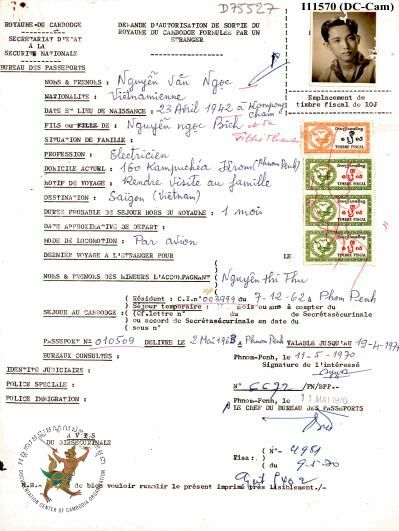 D75527
I11570 (DC-Cam)
ROYAUME-DU CAMBODGE
SECRETARIAT D'ETAT
A LA
SECURITE NATIONALE
BUREAU DES PASSEPORTS
DEMANDE D'AUTORISATION DE SORTIE DU
ROYAUME DU CAMBODGE FORMULEE PAR UN
ETRANGER
Emplacement de
timbre fiscal de 10J
NOMS & PRENOMS : Nguyễn Văn Ngọc
NATIONALITE : Vietnamienne
DATE ET LIEU DE NAISSANCE : 23 Avril 1942 à Kompong Cham
FILS ou FILLE DE : Nguyễn ngọc Bích et de
SITUATION DE FAMILLE :
PROFESSION : Electricien
DOMICILE ACTUEL : 160 Kampuchéa Krom (Phnom Penh)
MOTIF DU VOYAGE : Rendre Visite au famille
DESTINATION : Saïgon (Vietnam)
DUREE PROBABLE DE SEJOUR HORS DU ROYAUME : 1 mois
DATE APPROXIMATIVE DE DEPART :
MODE DE LOCOMOTION : Par avion
DERNIER VOYAGE A L'ETRANGER POUR LE
NOMS & PRENOMS DES MINEURS L'ACCOMPAGNANT Nguyễn thị Thu
TIMBRE FISCAL
TIMBRE FISCAL
TIMBRE FISCAL
TIMBRE FISCAL
SEJOUR AU CAMBODGE :
(Résident : C.I.n° 003999 du 7-12-62 à Phnom Penh
(Séjour temporaire : mois ou ans à compter du
(Cf.lettre n° du de Secrétasécurinale
ou accord de Secrétasécurinale en date du
sous n°
PASSEPORT N° 010509 DELIVRE LE 2 Mai 1963 à Phnom Penh VALABLE JUSQU'AU 19-4-197
BUREAUX CONSULTES :
Phnom-Penh, le 11-5-1970
Signature de l'intéressé
IDENTITE JUDICIAIRE :
POLICE SPECIALE :
POLICE IMMIGRATION :
N° /PN/BPP.-
Phnom-Penh, le 11 MAI 1970
LE CHEF DU BUREAU DES PASSEPORTS
AVIS
DU DIRSECURINALE
Visa :
( N°- 4981
( du 9-5-70
DOCUMENTATION CENTER OF CAMBODIA ORGANIZATION
N.B.- de bien vouloir remplir le présent imprimé très lisiblement./-